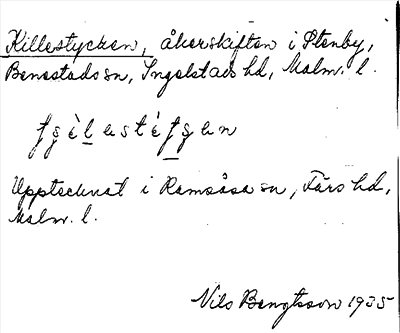 Killestycken, åkerskiften i Stenby,
Benestads sn, Ingelstads hd, Malm. l.
Upptecknat i Ramsåsa sn, Färs hd,
Malm. l.
Nils Bengtsson 1935